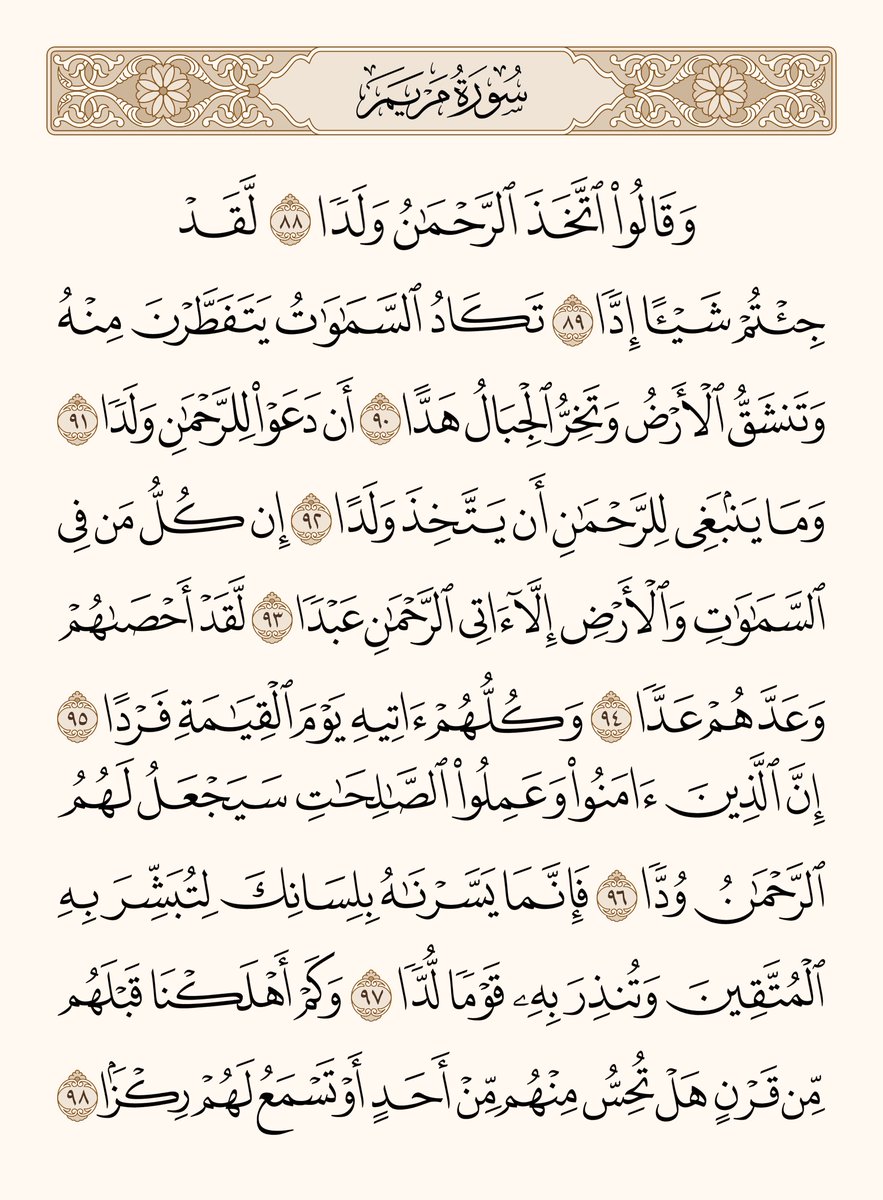 سُورَةُ مَرْيَمَ
وَقَالُوا۟ ٱتَّخَذَ ٱلرَّحْمَـٰنُ وَلَدًۭا ٨٨ لَّقَدْ
جِئْتُمْ شَيْـًٔا إِدًّۭا ٨٩ تَكَادُ ٱلسَّمَـٰوَٰتُ يَتَفَطَّرْنَ مِنْهُ
وَتَنشَقُّ ٱلْأَرْضُ وَتَخِرُّ ٱلْجِبَالُ هَدًّا ٩٠ أَن دَعَوْا۟ لِلرَّحْمَـٰنِ وَلَدًۭا ٩١
وَمَا يَنۢبَغِى لِلرَّحْمَـٰنِ أَن يَتَّخِذَ وَلَدًا ٩٢ إِن كُلُّ مَن فِى
ٱلسَّمَـٰوَٰتِ وَٱلْأَرْضِ إِلَّآ ءَاتِى ٱلرَّحْمَـٰنِ عَبْدًۭا ٩٣ لَّقَدْ أَحْصَىٰهُمْ
وَعَدَّهُمْ عَدًّۭا ٩٤ وَكُلُّهُمْ ءَاتِيهِ يَوْمَ ٱلْقِيَـٰمَةِ فَرْدًا ٩٥
إِنَّ ٱلَّذِينَ ءَامَنُوا۟ وَعَمِلُوا۟ ٱلصَّـٰلِحَـٰتِ سَيَجْعَلُ لَهُمُ
ٱلرَّحْمَـٰنُ وُدًّۭا ٩٦ فَإِنَّمَا يَسَّرْنَـٰهُ بِلِسَانِكَ لِتُبَشِّرَ بِهِ
ٱلْمُتَّقِينَ وَتُنذِرَ بِهِۦ قَوْمًۭا لُّدًّۭا ٩٧ وَكَمْ أَهْلَكْنَا قَبْلَهُم
مِّن قَرْنٍ هَلْ تُحِسُّ مِنْهُم مِّنْ أَحَدٍ أَوْ تَسْمَعُ لَهُمْ رِكْزًۢا ٩٨